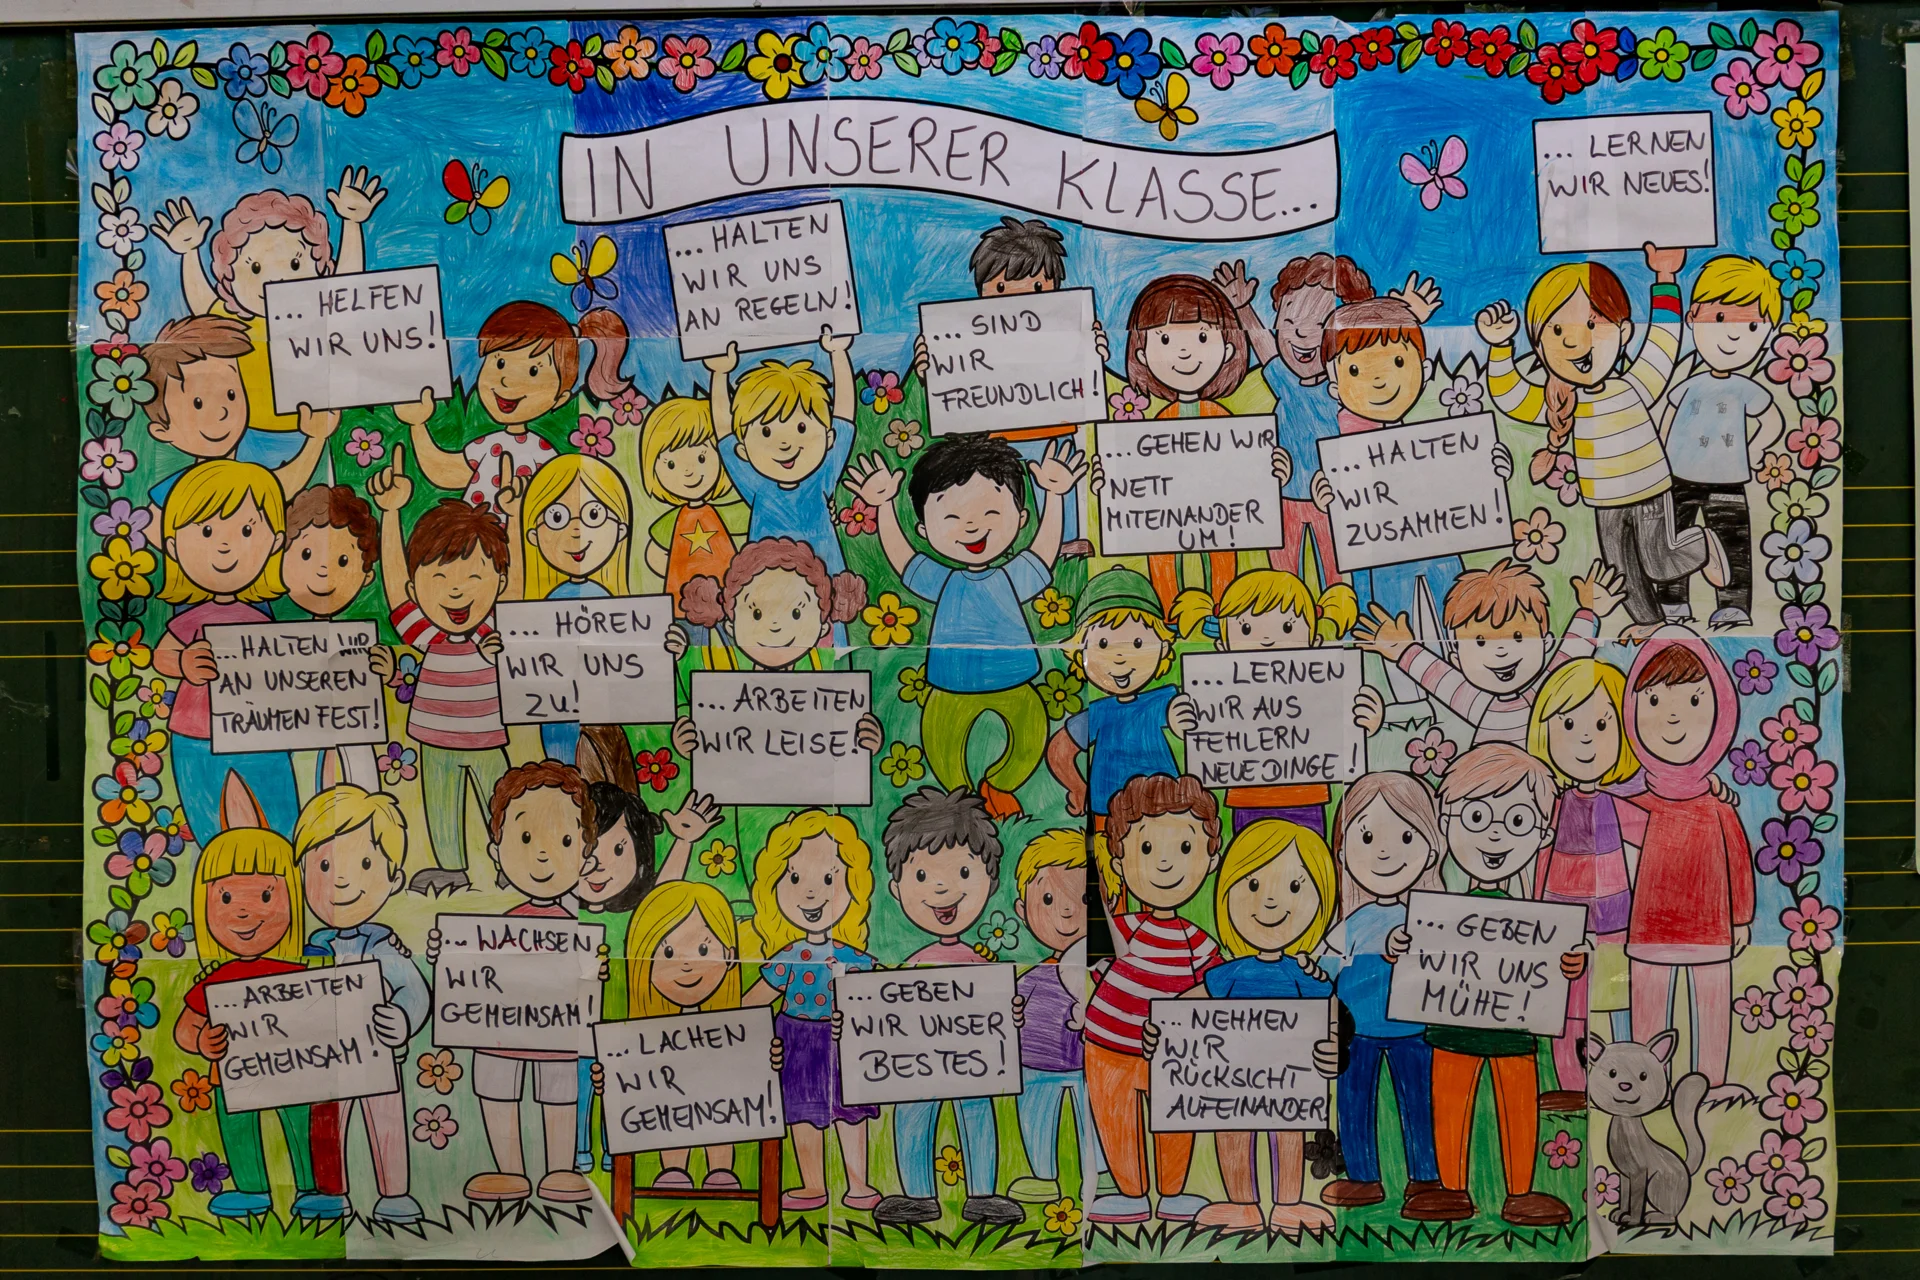 IN UNSERER KLASSE...
... LERNEN
WIR NEUES!
... HALTEN
WIR UNS
AN REGELN!
... HELFEN
WIR UNS!
... SIND
WIR
FREUNDLICH!
... GEHEN WIR
NETT
MITEINANDER
UM!
... HALTEN
WIR
ZUSAMMEN!
... HALTEN WIR
AN UNSEREN
TRÄUMEN FEST!
... HÖREN
WIR UNS
ZU!
... ARBEITEN
WIR LEISE!
... LERNEN
WIR AUS
FEHLERN
NEUE DINGE!
... ARBEITEN
WIR
GEMEINSAM!
... WACHSEN
WIR
GEMEINSAM!
... LACHEN
WIR
GEMEINSAM!
... GEBEN
WIR UNSER
BESTES!
... NEHMEN
WIR
RÜCKSICHT
AUFEINANDER!
... GEBEN
WIR UNS
MÜHE!